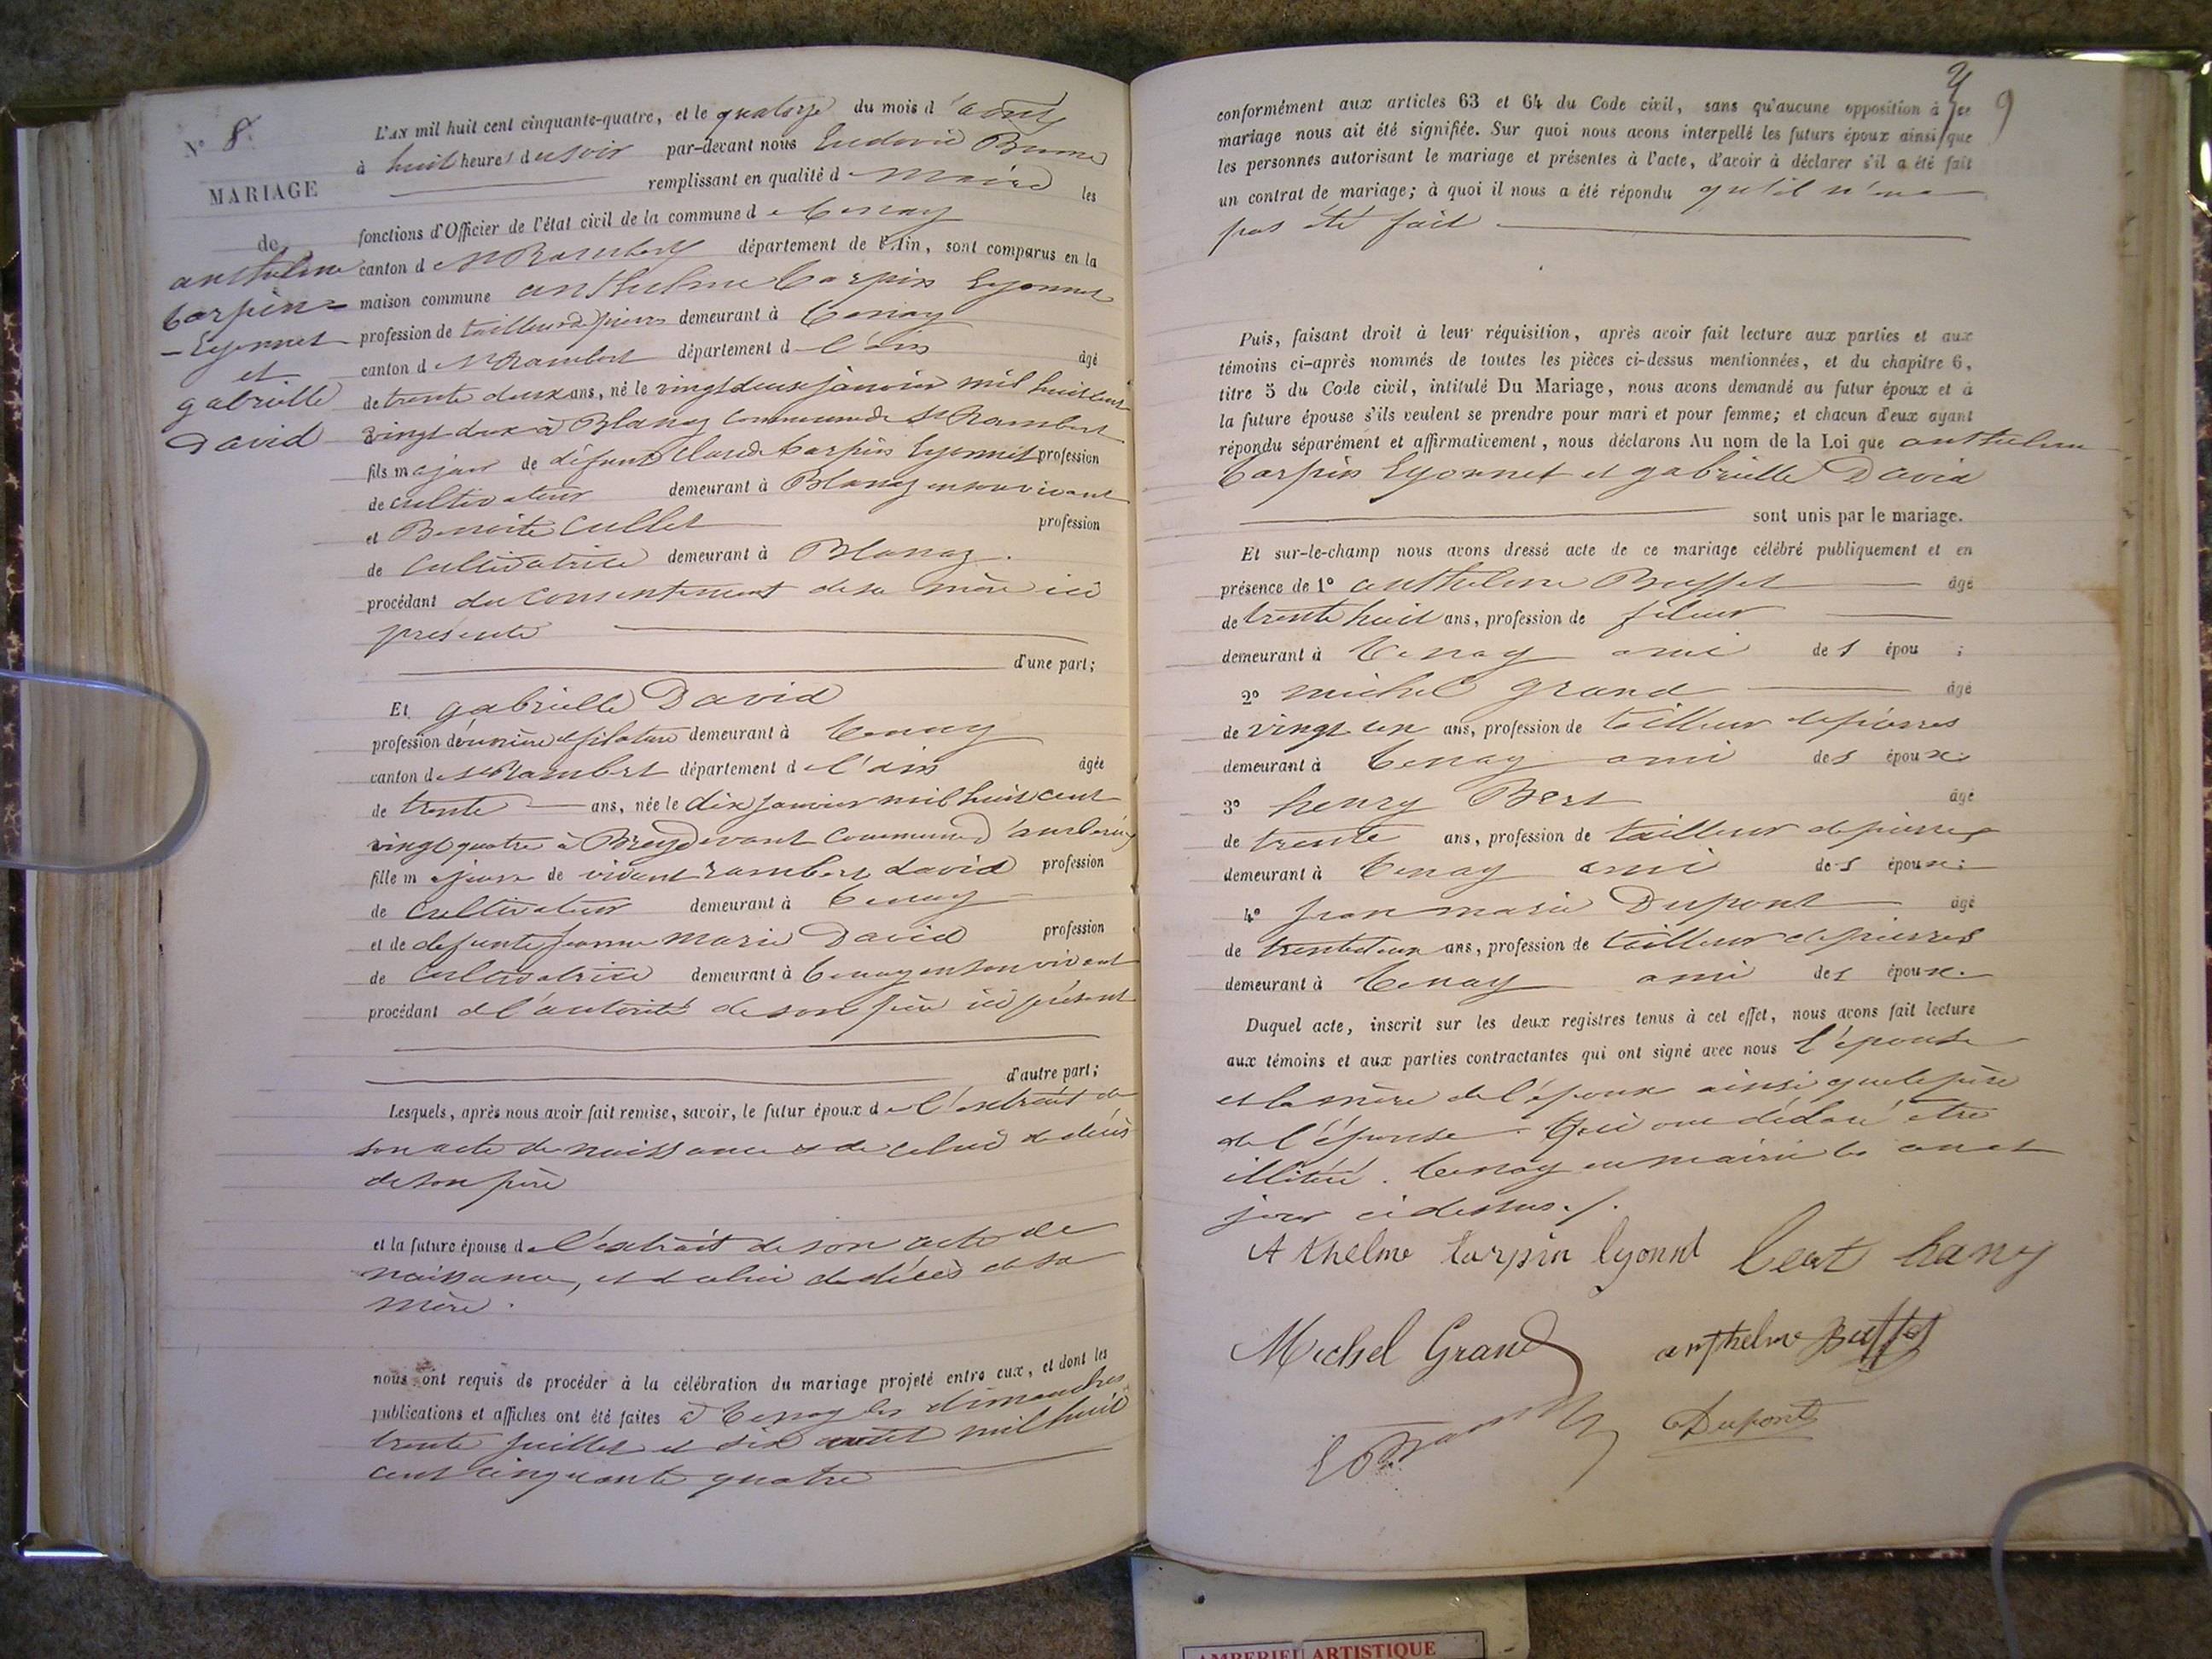 N° 8
MARIAGE
de
anthelme
Carpin=
-Lyonnet
et
gabrielle
David
L'AN mil huit cent cinquante-quatre, et le quatorze du mois d'aout
à huit heures du soir par-devant nous Ludovic
remplissant en qualité de Maire les
fonctions d'Officier de l'état civil de la commune de Tenay
canton de St Rambert département de l'Ain, sont comparus en la
maison commune anthelme Carpin Lyonnet
profession de tailleur de pierres demeurant à Tenay
canton de St Rambert département de l'ain âgé
de trente deux ans, né le vingt deux janvier mil huit cent
vingt deux à Blanaz commune de St Rambert
fils majeur de défunt Claude Carpin Lyonnet profession
de cultivateur demeurant à Blanaz en son vivant
et Benoite Cullet profession
de Cultivatrice demeurant à Blanaz.
procédant du consentement de sa mère ici
présente
d'une part;
Et gabrielle David
profession d'ouvrière de filature demeurant à Tenay
canton de St Rambert département de l'ain âgée
de trente ans, née le dix janvier mil huit cent
vingt quatre à commune d'
fille majeure de vivant rambert david profession
de Cultivateur demeurant à Tenay
et de defunte Jeanne Marie David profession
de Cultivatrice demeurant à Tenay en son vivant
procédant de l'autorité de son père ici présent
d'autre part;
Lesquels, après nous avoir fait remise, savoir, le futur époux de l'extrait de
son acte de naissance & de celui de décès
de son père
et la future épouse de l'extrait de son acte de
naissance, et de celui de décès de sa
mère.
nous ont requis de procéder à la célébration du mariage projeté entre eux, et dont les
publications et affiches ont été faites à Tenay les dimanches
trente juillet et six aout mil huit
cent cinquante quatre
9
conformément aux articles 63 et 64 du Code civil, sans qu'aucune opposition à ce
mariage nous ait été signifiée. Sur quoi nous avons interpellé les futurs époux ainsi que
les personnes autorisant le mariage et présentes à l'acte, d'avoir à déclarer s'il a été fait
un contrat de mariage; à quoi il nous a été répondu qu'il n'en a
pas été fait
Puis, faisant droit à leur réquisition, après avoir fait lecture aux parties et aux
témoins ci-après nommés de toutes les pièces ci-dessus mentionnées, et du chapitre 6,
titre 5 du Code civil, intitulé Du Mariage, nous avons demandé au futur époux et à
la future épouse s'ils veulent se prendre pour mari et pour femme; et chacun d'eux ayant
répondu séparément et affirmativement, nous déclarons Au nom de la Loi que anthelme
Carpin Lyonnet et gabrielle David
sont unis par le mariage.
Et sur-le-champ nous avons dressé acte de ce mariage célébré publiquement et en
présence de 1° anthelme Buffet âgé
de trente huit ans, profession de fileur
demeurant à Tenay ami des épou ;
2° michel grand âgé
de vingt un ans, profession de tailleur de pierres
demeurant à Tenay ami des époux;
3° henry Bert âgé
de trente ans, profession de tailleur de pierres
demeurant à Tenay ami des époux;
4° Jean marie Dupont âgé
de trente deux ans, profession de tailleur de pierres
demeurant à Tenay ami des époux.
Duquel acte, inscrit sur les deux registres tenus à cet effet, nous avons fait lecture
aux témoins et aux parties contractantes qui ont signé avec nous l'épouse
et la mère de l'époux ainsi que le père
de l'épouse. Qui ont déclaré être
illitéré. Tenay en mairie les an et
jour ci dessus./.
Athelme Carpin lyonnet beat hany
Michel Grand anthelme Buffet
Dupont
AMBERIEU ARTISTIQUE